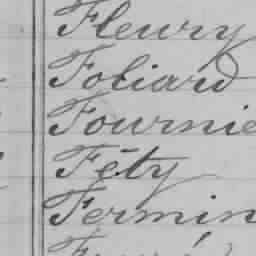 Fleury
Foliard
Fournie
Féty
Fermin